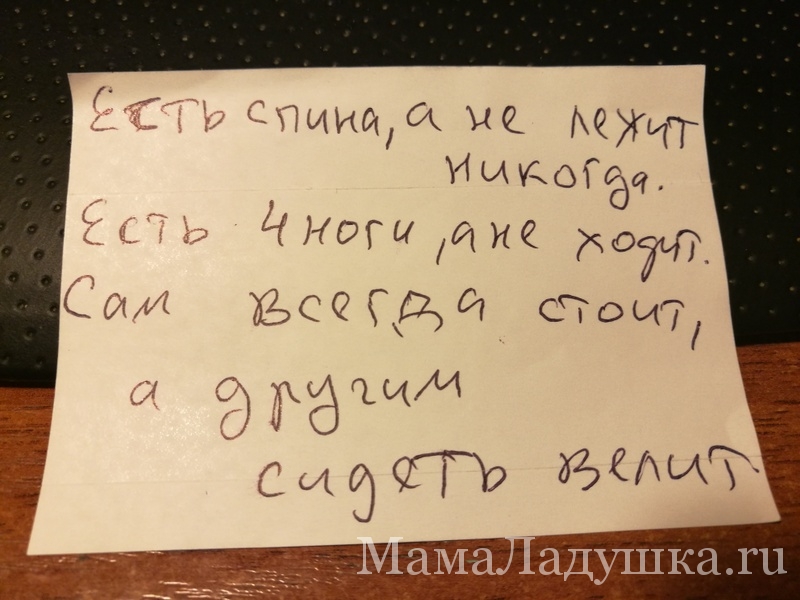 Есть спина, а не лежит
никогда.
Есть 4 ноги, а не ходит.
Сам всегда стоит,
а другим
сидеть велит
МамаЛадушка.ru